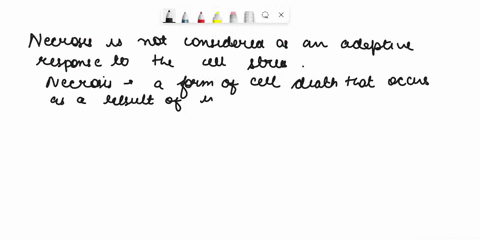 Necrosis is not considered as an adaptive
response to the cell stress.
Necrosis → a form of cell death that occurs
as a result of